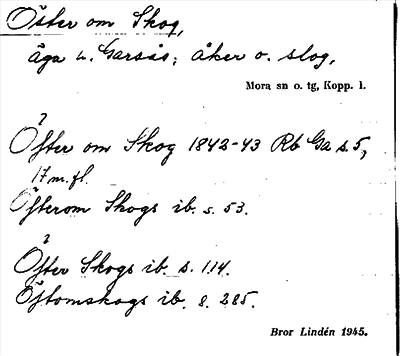 Öster om Skog,
äga u. Garsås; åker o. slog,
Mora sn o. tg, Kopp. l.
?
Öfter om Skog 1842-43 Rb Ga s. 5,
17 m. fl.
Öfterom Skogs ib. s. 53.
?
Öfter Skogs ib. s. 114.
Öftomskogs ib. s. 285.
Bror Lindén 1945.